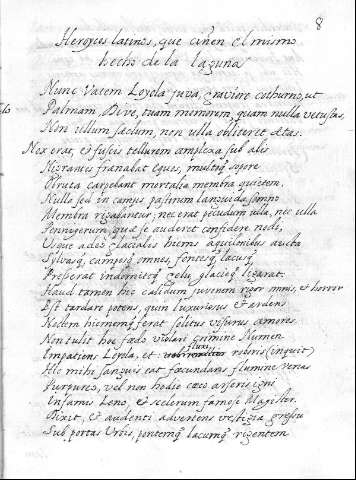 8
Heroyces latinos, que ciñen el mismo
hecho de la laguna
Nunc Vatem Loyola juva, graviore cothurno, ut
Palmam, Dive, tuam memorem, quam nulla vetustas,
Non ullum sæclum, non ulla obliteret ætas.
Nox erat, et fuscis tellurem amplexa sub alis
Nigrantes frænabat equos, multoq; sopore
Diruta carpebant mortalia membra quietem.
Nulla sed in campis passim languida somno
Membra rigabantur, nec erat pecudum ulla, nec ulla
Pennigerum, quæ se auderet confidere nocti,
Usque adeo glacialis hiems aquilonibus aucta
Sylvasq; camposq; omnes, fontesq; lacusq;
Presserat indomitoq; gelu, glacieq; ligarat.
Haud tamen hic calidum juvenem rigor omnis, et horror
Est tardare potens, quin luxuriosus et ardens
Noctem hiememq; ferat solitus visurus amores.
Non tulit hoc fædo violari crimine Numen
Impatiens Loyola, et
fluxi
roboris (inquit)
Hic mihi sanguis eat fæcundans flumine venas
Purpureo, vel non hodie cæco arseris igni
Infamis Leno, et scelerum famose Magister.
Dixit, et audenti advertens vestigia gressu
Sub portas Urbis, pontemq; lacumq; rigentem